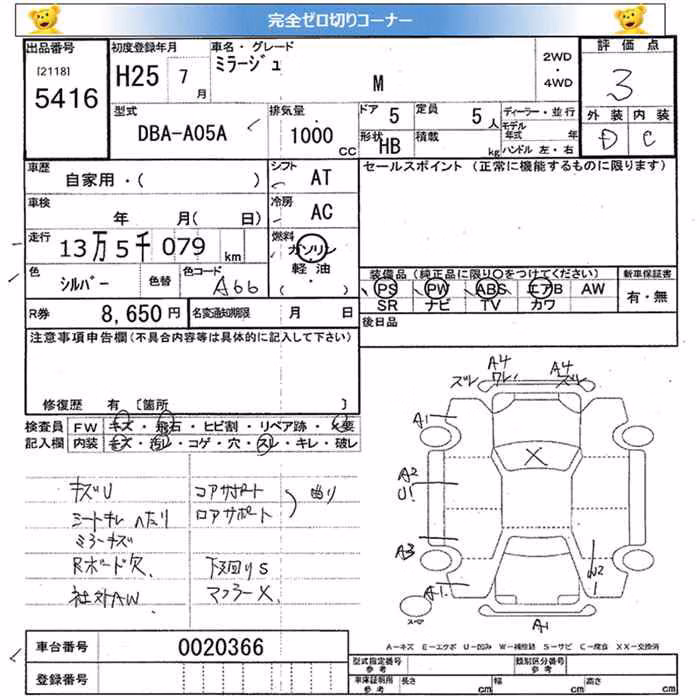 完全ゼロ切りコーナー
出品番号
[2118]
5416
初度登録年月
H25 7月
車名・グレード
ミラージュ
M
2WD
・
4WD
評価点
3
外装 内装
D C
型式
DBA-A05A
排気量
1000 CC
ドア 5
定員 5人
形状 HB
積載 kg
ディーラー・並行
モデル年式 年
ハンドル 左・右
車歴
自家用・( )
シフト AT
セールスポイント (正常に機能するものに限ります)
車検
年 月( 日)
冷房 AC
走行
13万5千079 km
燃料
ガソリン
軽油
・
色
シルバー
色替
色コード
A66
装備品 (純正品に限り○をつけてください)
新車保証書
PS PW ABS エアB AW
SR ナビ TV カワ
有・無
R券 8,650円
名変通知期限 月 日
後日品
注意事項申告欄(不具合内容等は具体的に記入して下さい)
修復歴 有 [箇所 ]
検査員 FW キズ・飛石・ヒビ割・リペア跡・X要
記入欄 内装 キズ・汚レ・コゲ・穴・スレ・キレ・破レ
キズU
シートキレ ヘたり
ミラーキズ
Rボード欠
社外AW
コアサポート
ロアサポート
曲り
下回りS
マフラーX
ズレ
A4
ワレ
A4
ズレ
A1
X
A2
U1
A3
A1
W2
スペア
A1
A-キズ E-エクボ U-凹み W-補修跡 S-サビ C-腐食 XX-交換済
車台番号 0020366
登録番号
型式指定番号
参考
類別区分番号
参考
車庫証明用
参考
長さ cm 幅 cm 高さ cm